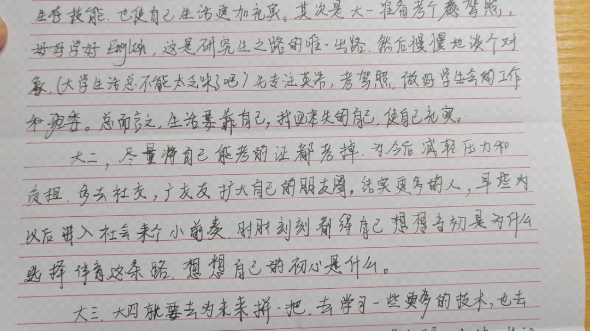 生存技能,也使自己生活更加充实。其次是大一准备考个驾照,
好好学好English,这是研究生之路的唯一出路,然后慢慢地谈个对
象,(大学生活总不能太乏味了吧)先专注英语,考驾照,做好学生会的工作
和班委。总而言之,生活要靠自己,找回丢失的自己,使自己充实。
大二,尽量将自己能考的证都考掉,为今后减轻压力和
负担,多去社交,广交友扩大自己的朋友圈,结实更多的人,早些为
以后进入社会来个小前奏,时时刻刻都得自己想想当初是为什么
选择体育这条路,想想自己的初心是什么。
大三、大四就要去为未来拼一把,去学习一些更多的技术,也去